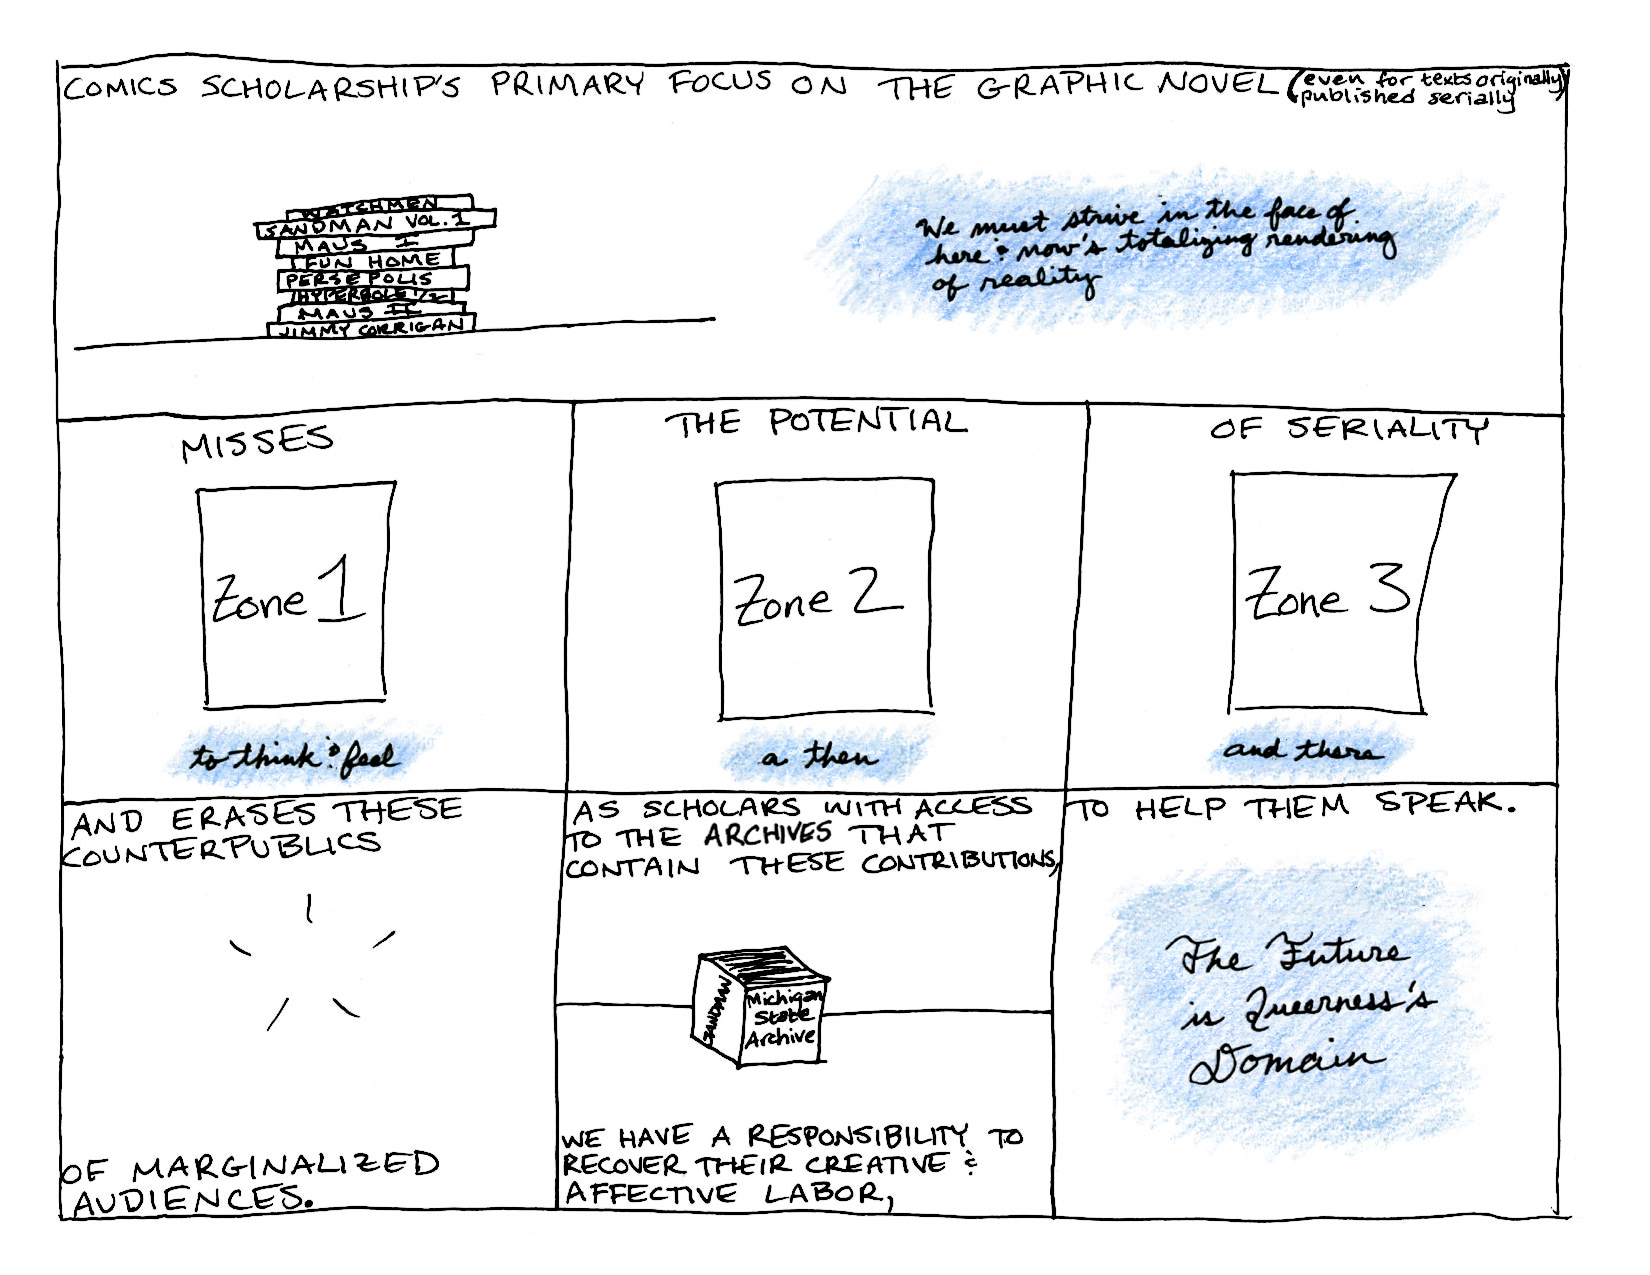 COMICS SCHOLARSHIP'S PRIMARY FOCUS ON THE GRAPHIC NOVEL (even for texts originally
published serially)
WATCHMEN
SANDMAN VOL. 1
MAUS I
FUN HOME
PERSEPOLIS
HYPERBOLE 1/2
MAUS II
JIMMY CORRIGAN
We must strive in the face of
here & now's totalizing rendering
of reality
MISSES
Zone 1
to think & feel
THE POTENTIAL
Zone 2
a then
OF SERIALITY
Zone 3
and there
AND ERASES THESE
COUNTERPUBLICS
OF MARGINALIZED
AUDIENCES.
AS SCHOLARS WITH ACCESS
TO THE ARCHIVES THAT
CONTAIN THESE CONTRIBUTIONS,
SANDMAN
Michigan
State
Archive
WE HAVE A RESPONSIBILITY TO
RECOVER THEIR CREATIVE &
AFFECTIVE LABOR,
TO HELP THEM SPEAK.
The Future
is Queerness's
Domain